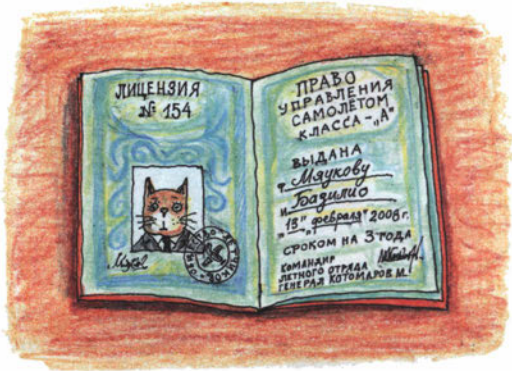 ЛИЦЕНЗИЯ
№ 154
ПРАВО
УПРАВЛЕНИЯ
САМОЛЁТОМ
КЛАССА-„А"
ВЫДАНА
г. Мяукову
Базилио
"13" февраля 2006 г.
СРОКОМ НА 3 ГОДА
КОМАНДИР
ЛЕТНОГО ОТРЯДА
ГЕНЕРАЛ КОТОМАРОВ М.